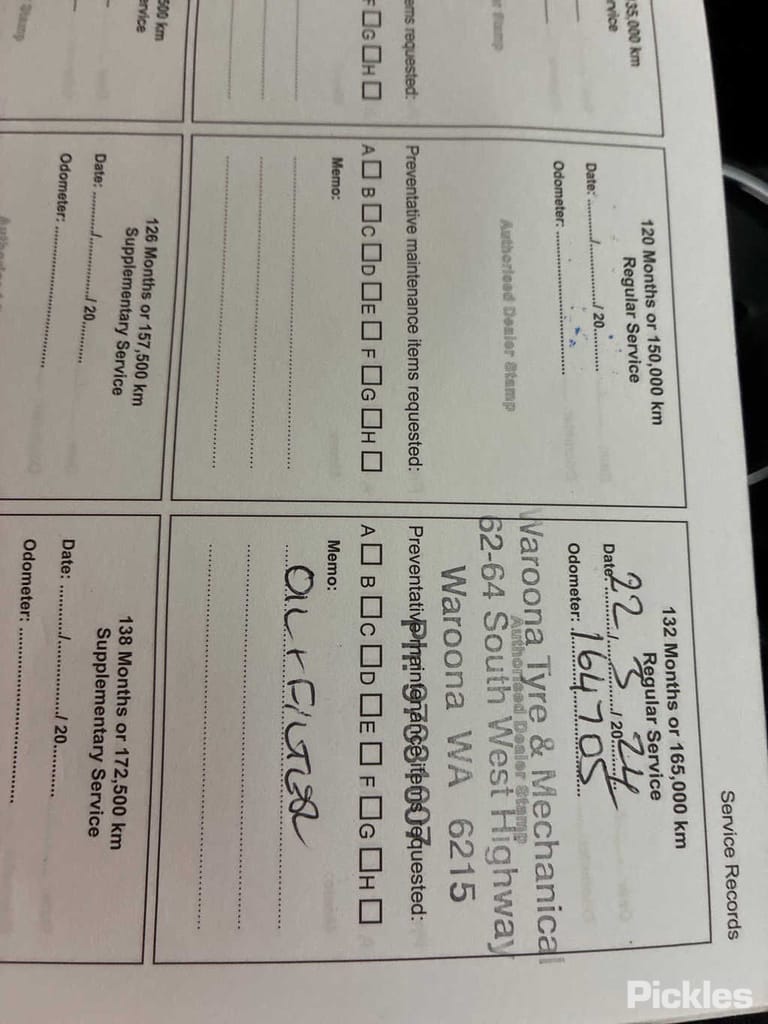 Service Records
35,000 km
rvice
ems requested:
F G H
500 km
ervice
120 Months or 150,000 km
Regular Service
Date: ........./............../ 20.........
Odometer: ....................................
Authorised Dealer Stamp
Preventative maintenance items requested:
A B C D E F G H
Memo:
126 Months or 157,500 km
Supplementary Service
Date: ........./............../ 20.........
Odometer: ....................................
132 Months or 165,000 km
Regular Service
Date: 22 / 5 / 20 24
Odometer: 164705
Authorised Dealer Stamp
Waroona Tyre & Mechanical
62-64 South West Highway
Waroona WA 6215
Preventative maintenance items requested:
A B C D E F G H
Memo:
OIL + FILTER
138 Months or 172,500 km
Supplementary Service
Date: ........./............../ 20.........
Odometer: ....................................
Pickles